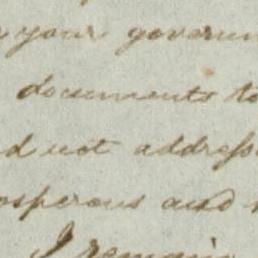 your govern
documents to
d not address
osperous and
I remain